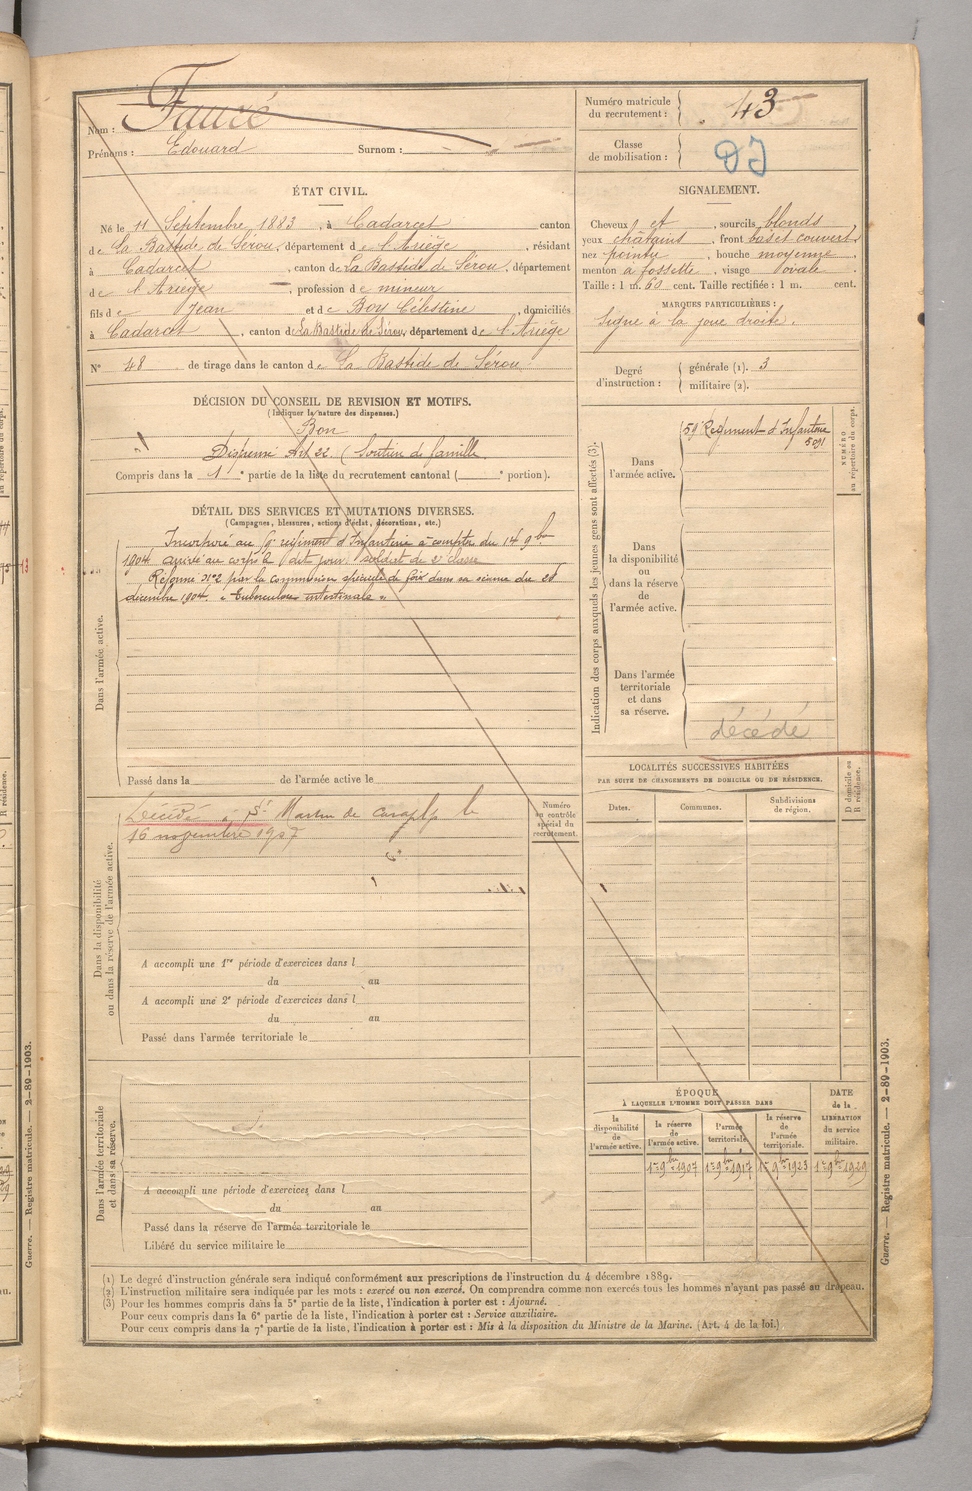 Nom : Fauré
Prénoms : Edouard Surnom :
Numéro matricule du recrutement : 43
Classe de mobilisation :
ÉTAT CIVIL.
Né le 11 Septembre 1883, à Cadarcet canton
de La Bastide de Sérou, département de l'Ariège, résidant
à Cadarcet, canton de La Bastide de Sérou, département
de l'Ariège, profession de mineur
fils de Jean et de Boy Célestine, domiciliés
à Cadarcet, canton de La Bastide de Sérou, département de l'Ariège
N° 48 de tirage dans le canton de La Bastide de Sérou
SIGNALEMENT.
Cheveux et, sourcils blonds
yeux châtains, front bas et couvert,
nez pointu, bouche moyenne,
menton à fossette, visage ovale.
Taille : 1 m. 60 cent. Taille rectifiée : 1 m. cent.
MARQUES PARTICULIÈRES :
Signe à la joue droite.
Degré d'instruction : générale (1). 3
militaire (2).
DÉCISION DU CONSEIL DE REVISION ET MOTIFS.
(Indiquer la nature des dispenses.)
Bon
Dispensé Art 22. (Soutien de famille
Compris dans la 1e partie de la liste du recrutement cantonal ( e portion).
DÉTAIL DES SERVICES ET MUTATIONS DIVERSES.
(Campagnes, blessures, actions d'éclat, décorations, etc.)
Dans l'armée active.
Incorporé au régiment d'Infanterie à compter du 14 9bre
1904 arrivé au corps le dit jour, soldat de 2e classe
Réformé N°2 par la commission spéciale de Foix dans sa séance du 28
décembre 1904. « Tuberculose intestinale »
Passé dans la de l'armée active le
Indication des corps auxquels les jeunes gens sont affectés (3).
NUMÉRO au répertoire du corps.
Dans l'armée active.
59e Régiment d'Infanterie
5091
Dans la disponibilité ou dans la réserve de l'armée active.
Dans l'armée territoriale et dans sa réserve.
décédé
LOCALITÉS SUCCESSIVES HABITÉES
PAR SUITE DE CHANGEMENTS DE DOMICILE OU DE RÉSIDENCE.
Dates. Communes. Subdivisions de région. D domicile ou R résidence.
Dans la disponibilité ou dans la réserve de l'armée active.
Numéro au contrôle spécial du recrutement.
Décédé à St Martin de Caralp le
16 novembre 1907
A accompli une 1re période d'exercices dans l
du au
A accompli une 2e période d'exercices dans l
du au
Passé dans l'armée territoriale le
ÉPOQUE
À LAQUELLE L'HOMME DOIT PASSER DANS
la disponibilité de l'armée active.
la réserve de l'armée active.
l'armée territoriale.
la réserve de l'armée territoriale.
DATE de la LIBÉRATION du service militaire.
1er 9bre 1907 1er 9bre 1917 1er 9bre 1923 1er 9bre 1929
Dans l'armée territoriale et dans sa réserve.
A accompli une période d'exercices dans l
du au
Passé dans la réserve de l'armée territoriale le
Libéré du service militaire le
(1) Le degré d'instruction générale sera indiqué conformément aux prescriptions de l'instruction du 4 décembre 1889.
(2) L'instruction militaire sera indiquée par les mots : exercé ou non exercé. On comprendra comme non exercés tous les hommes n'ayant pas passé au drapeau.
(3) Pour les hommes compris dans la 5e partie de la liste, l'indication à porter est : Ajourné.
Pour ceux compris dans la 6e partie de la liste, l'indication à porter est : Service auxiliaire.
Pour ceux compris dans la 7e partie de la liste, l'indication à porter est : Mis à la disposition du Ministre de la Marine. (Art. 4 de la loi.)
Guerre. — Registre matricule. — 2-89-1903.
Guerre. — Registre matricule. — 2-89-1903.